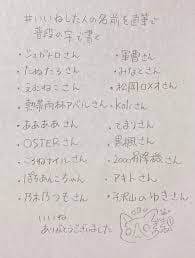 #いいねした人の名前を直筆で
普段の字で書く
・ジュガトロさん
・たぬたろさん
・えむねこさん
・熱帯雨林アパルさん
・ああああさん
・OSTERさん
・ころねナイルさん
・ぽちあんこちゃん
・乃木乃つもさん
・軍曹さん
・みなとさん
・松岡ロメオさん
・Koltさん
・てまりさん
・黒楓さん
・2000有幣機さん
・アキトさん
・平沢山のゆきさん
いいね
ありがとうございました